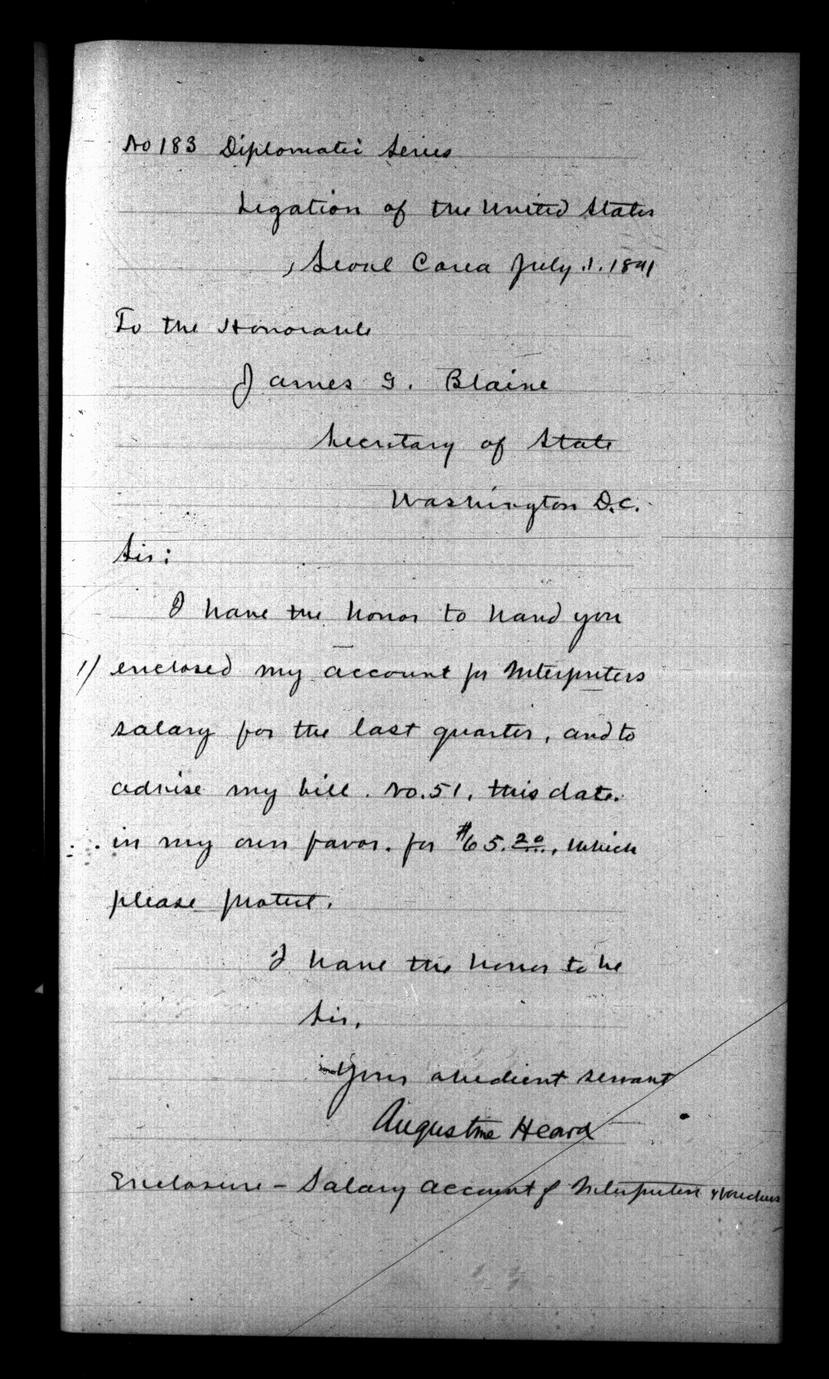 No 183 Diplomatic Series
Legation of the United States
Seoul Corea July 1. 1891
To the Honorable
James G. Blaine
Secretary of State
Washington D.C.
Sir:
I have the honor to hand you
1/ enclosed my account for Interpreters
salary for the last quarter, and to
advise my bill. No. 51, this date.
in my own favor. for $65.20, which
please protect.
I have the honor to be
Sir,
Your obedient servant
Augustine Heard
Enclosure - Salary account of Interpreters & vouchers